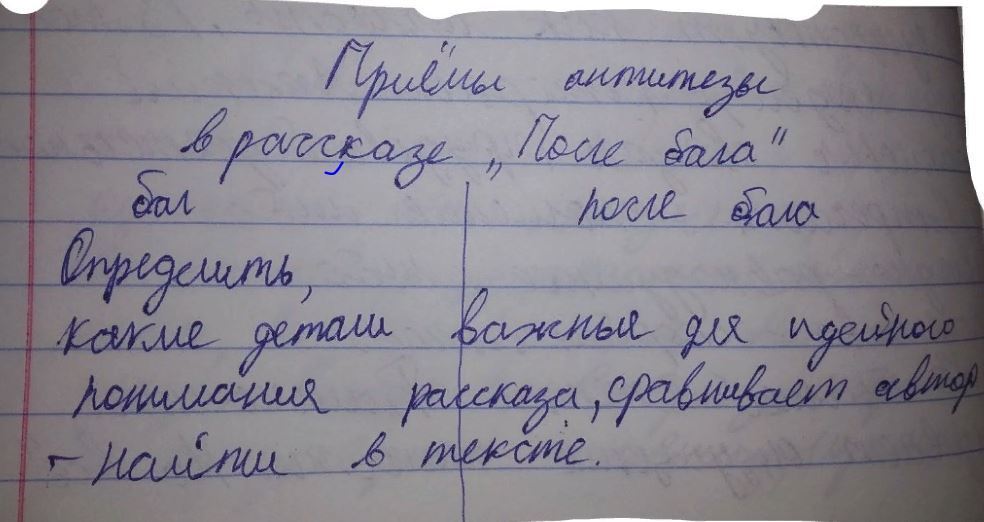 Приёмы антитезы
в рассказе „После бала"
бал после бала
Определить,
какие детали важные для идейного
понимания рассказа, сравнивает автор
- найти в тексте.